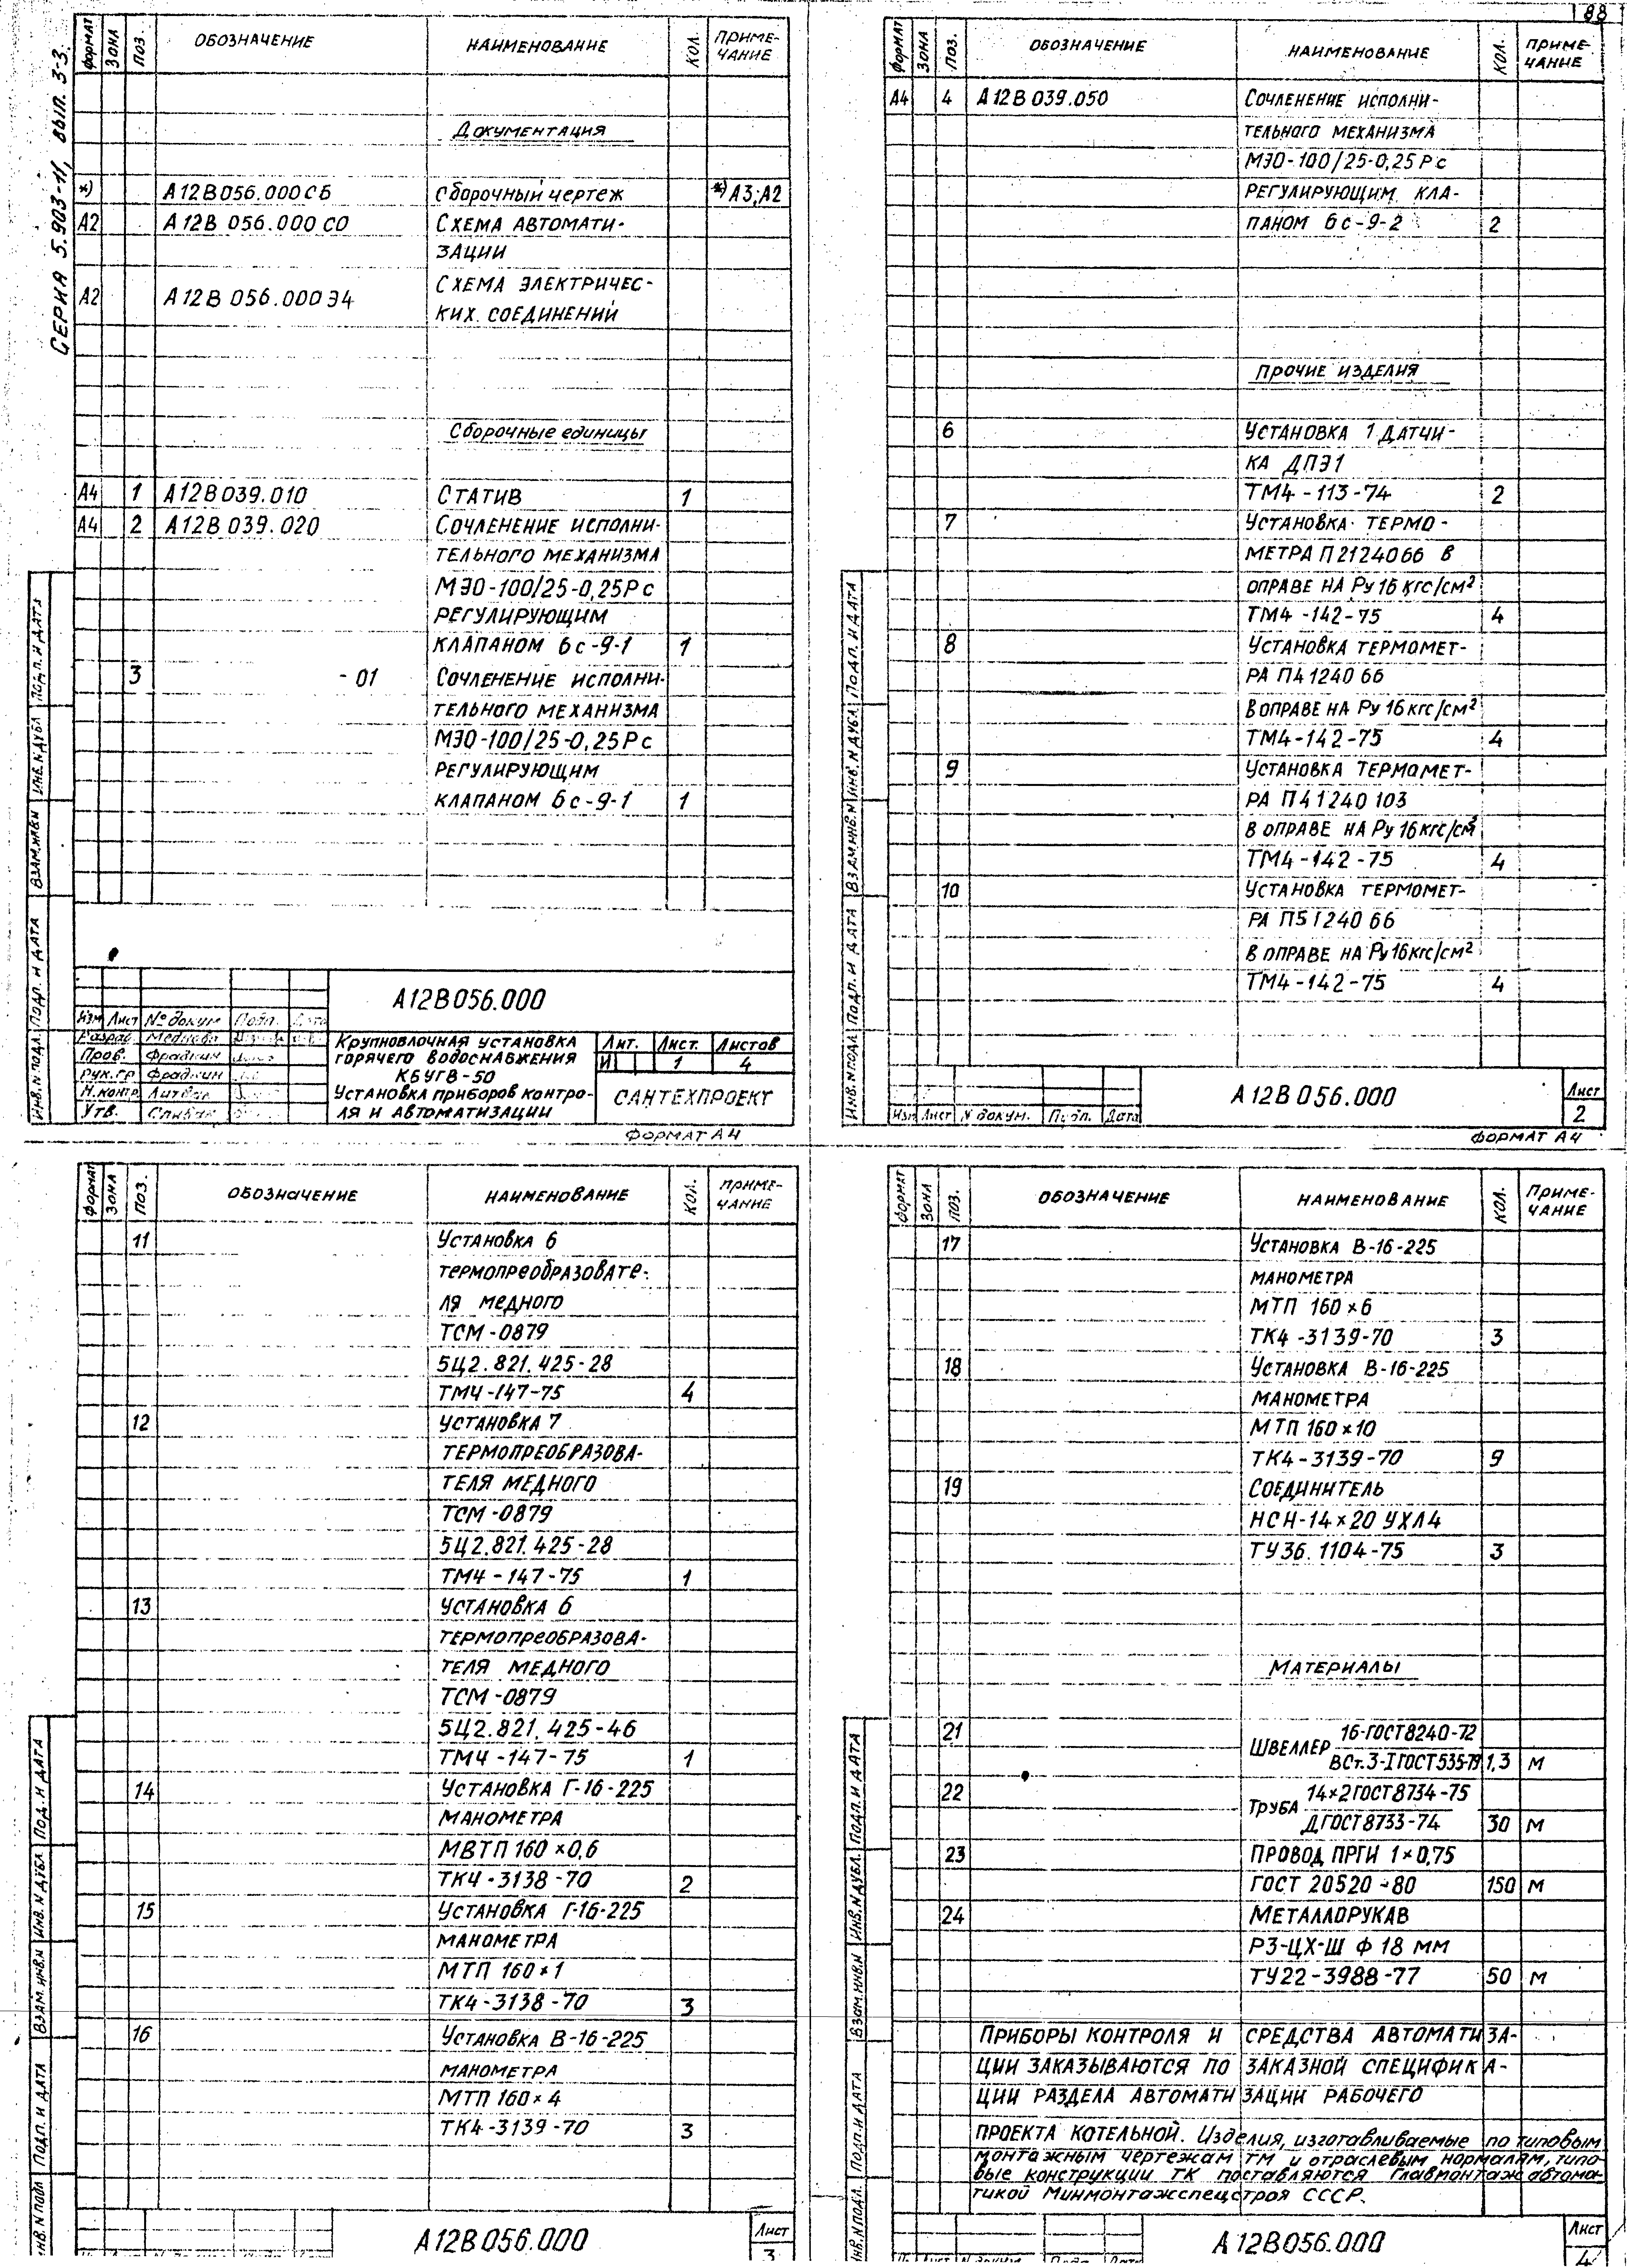 88
СЕРИЯ 5.903-11, ВЫП. 3-3.
ФОРМАТ ЗОНА ПОЗ. ОБОЗНАЧЕНИЕ НАИМЕНОВАНИЕ КОЛ. ПРИМЕ-
ЧАНИЕ
Документация
*) А12В056.000СБ Сборочный чертеж *) А3;А2
А2 А12В 056.000 СО СХЕМА АВТОМАТИ-
ЗАЦИИ
А2 А12В 056.000 Э4 СХЕМА ЭЛЕКТРИЧЕС-
КИХ СОЕДИНЕНИЙ
Сборочные единицы
А4 1 А12В039.010 СТАТИВ 1
А4 2 А12В 039.020 СОЧЛЕНЕНИЕ ИСПОЛНИ-
ТЕЛЬНОГО МЕХАНИЗМА
МЭО-100/25-0,25Р с
РЕГУЛИРУЮЩИМ
КЛАПАНОМ 6с-9-1 1
3 -01 СОЧЛЕНЕНИЕ ИСПОЛНИ-
ТЕЛЬНОГО МЕХАНИЗМА
МЭО-100/25-0,25Р с
РЕГУЛИРУЮЩИМ
КЛАПАНОМ 6с-9-1 1
ИНВ.N ПОДЛ. ПОДП. И ДАТА ВЗАМ.ИНВ.N ИНВ.N ДУБЛ. ПОДП. И ДАТА
А12В056.000
Изм Лист № докум Подп. Дата
Разраб
Пров. Фрадкин
Рук.гр Фрадкин
Н.контр
Утв.
КРУПНОБЛОЧНАЯ УСТАНОВКА
ГОРЯЧЕГО ВОДОСНАБЖЕНИЯ
КБУГВ-50
УСТАНОВКА ПРИБОРОВ КОНТРО-
ЛЯ И АВТОМАТИЗАЦИИ
Лит. Лист. Листов
И 1 4
САНТЕХПРОЕКТ
ФОРМАТ А4
ФОРМАТ ЗОНА ПОЗ. ОБОЗНАЧЕНИЕ НАИМЕНОВАНИЕ КОЛ. ПРИМЕ-
ЧАНИЕ
А4 4 А12В 039.050 СОЧЛЕНЕНИЕ ИСПОЛНИ-
ТЕЛЬНОГО МЕХАНИЗМА
МЭО-100/25-0,25Р с
РЕГУЛИРУЮЩИМ КЛА-
ПАНОМ 6с-9-2 2
ПРОЧИЕ ИЗДЕЛИЯ
6 УСТАНОВКА 1 ДАТЧИ-
КА ДПЭ1
ТМ4-113-74 2
7 УСТАНОВКА ТЕРМО-
МЕТРА П2124066 В
ОПРАВЕ НА Ру 16 кгс/см²
ТМ4-142-75 4
8 УСТАНОВКА ТЕРМОМЕТ-
РА П4124066
В ОПРАВЕ НА Ру 16 кгс/см²
ТМ4-142-75 4
9 УСТАНОВКА ТЕРМОМЕТ-
РА П41240103
В ОПРАВЕ НА Ру 16 кгс/см²
ТМ4-142-75 4
10 УСТАНОВКА ТЕРМОМЕТ-
РА П5124066
В ОПРАВЕ НА Ру 16 кгс/см²
ТМ4-142-75 4
ИНВ.N ПОДЛ. ПОДП. И ДАТА ВЗАМ.ИНВ.N ИНВ.N ДУБЛ. ПОДП. И ДАТА
Изм Лист N докум. Подп. Дата
А12В056.000
Лист
2
ФОРМАТ А4
ФОРМАТ ЗОНА ПОЗ. ОБОЗНАЧЕНИЕ НАИМЕНОВАНИЕ КОЛ. ПРИМЕ-
ЧАНИЕ
11 УСТАНОВКА 6
ТЕРМОПРЕОБРАЗОВАТЕ-
ЛЯ МЕДНОГО
ТСМ-0879
5Ц2.821.425-28
ТМ4-147-75 4
12 УСТАНОВКА 7
ТЕРМОПРЕОБРАЗОВА-
ТЕЛЯ МЕДНОГО
ТСМ-0879
5Ц2.821.425-28
ТМ4-147-75 1
13 УСТАНОВКА 6
ТЕРМОПРЕОБРАЗОВА-
ТЕЛЯ МЕДНОГО
ТСМ-0879
5Ц2.821.425-46
ТМ4-147-75 1
14 УСТАНОВКА Г-16-225
МАНОМЕТРА
МВТП 160×0,6
ТК4-3138-70 2
15 УСТАНОВКА Г-16-225
МАНОМЕТРА
МТП 160×1
ТК4-3138-70 3
16 УСТАНОВКА В-16-225
МАНОМЕТРА
МТП 160×4
ТК4-3139-70 3
ИНВ.N ПОДЛ ПОДП. И ДАТА ВЗАМ.ИНВ.N ИНВ.N ДУБЛ ПОД. И ДАТА
А12В056.000
Лист
3
ФОРМАТ ЗОНА ПОЗ. ОБОЗНАЧЕНИЕ НАИМЕНОВАНИЕ КОЛ. ПРИМЕ-
ЧАНИЕ
17 УСТАНОВКА В-16-225
МАНОМЕТРА
МТП 160×6
ТК4-3139-70 3
18 УСТАНОВКА В-16-225
МАНОМЕТРА
МТП 160×10
ТК4-3139-70 9
19 СОЕДИНИТЕЛЬ
НСН-14×20 УХЛ4
ТУ36.1104-75 3
МАТЕРИАЛЫ
21 ШВЕЛЛЕР 16-ГОСТ8240-72
ВСт.3-I ГОСТ535-79 1,3 м
22 ТРУБА 14×2 ГОСТ8734-75
Д ГОСТ8733-74 30 м
23 ПРОВОД ПРГИ 1×0,75
ГОСТ 20520-80 150 м
24 МЕТАЛЛОРУКАВ
РЗ-ЦХ-Ш Ф 18 мм
ТУ22-3988-77 50 м
ПРИБОРЫ КОНТРОЛЯ И СРЕДСТВА АВТОМАТИЗА-
ЦИИ ЗАКАЗЫВАЮТСЯ ПО ЗАКАЗНОЙ СПЕЦИФИКА-
ЦИИ РАЗДЕЛА АВТОМАТИЗАЦИИ РАБОЧЕГО
ПРОЕКТА КОТЕЛЬНОЙ. Изделия, изготавливаемые по типовым
монтажным чертежам ТМ и отраслевым нормалям, типо-
вые конструкции ТК поставляются Главмонтажавтома-
тикой Минмонтажспецстроя СССР.
ИНВ.N ПОДЛ. ПОДП. И ДАТА ВЗАМ.ИНВ.N ИНВ.N ДУБЛ. ПОДП. И ДАТА
А12В056.000
Лист
4